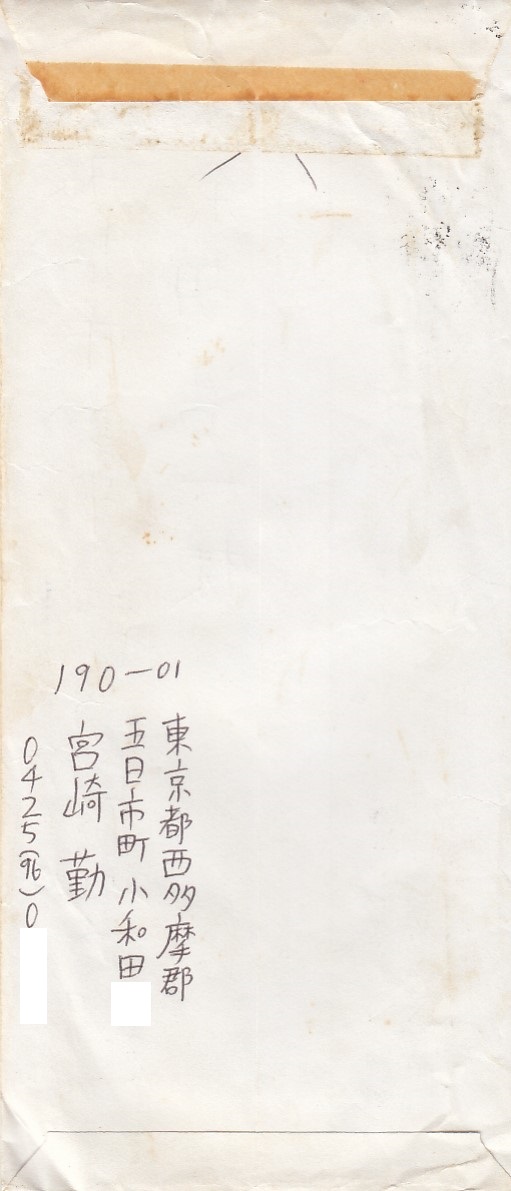 190-01
東京都西多摩郡
五日市町小和田
宮崎 勤
0425(96)0